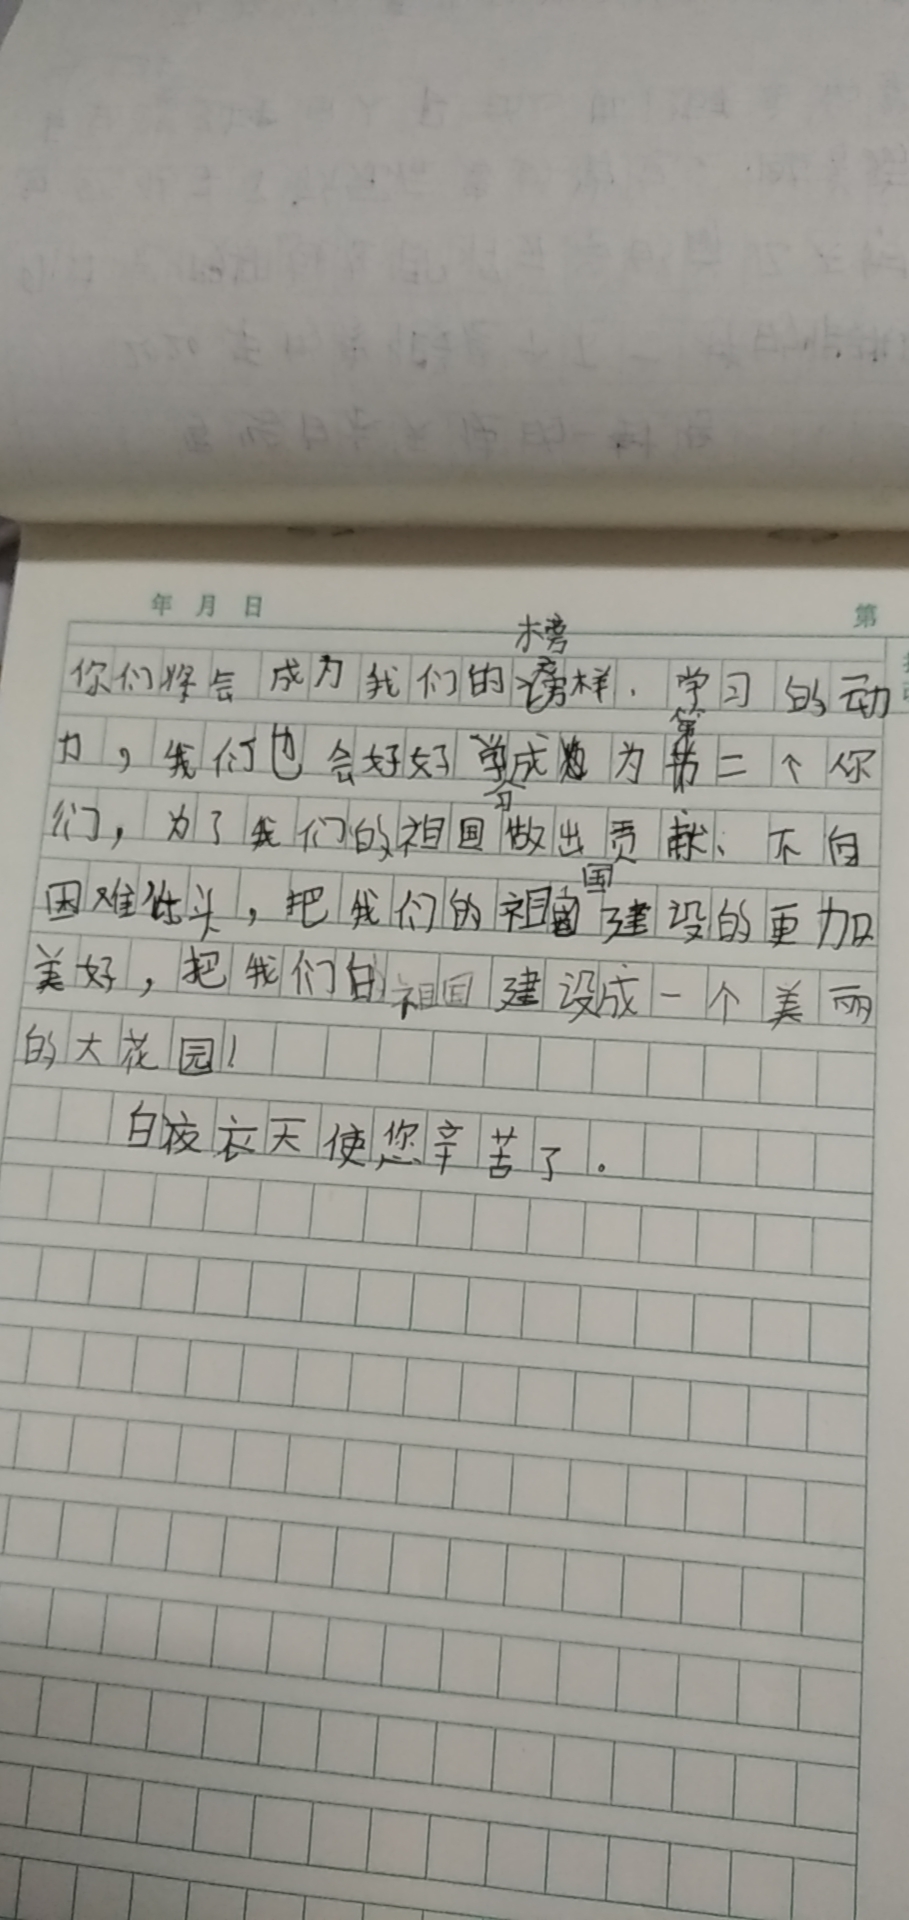 年 月 日
第
你们将会成为我们的榜样、学习的动
力，我们也会好好学习成为第二个你
们，为了我们的祖国做出贡献、不向
困难低头，把我们的祖国建设的更加
美好，把我们的祖国建设成一个美丽
的大花园！
白夜衣天使您辛苦了。